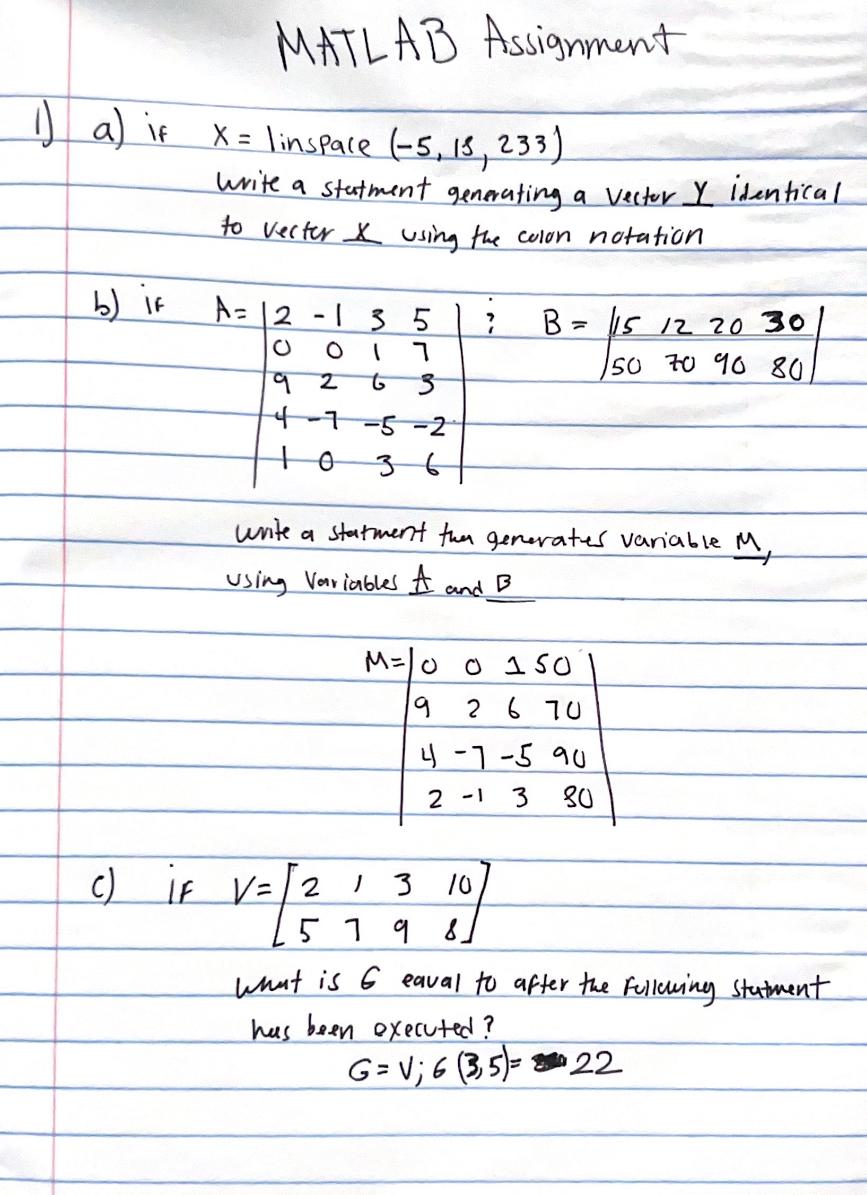 MATLAB Assignment
1) a) if X = linspace (-5, 15, 233)
write a statment generating a vector Y identical
to vector X using the colon notation
b) if A = |2 -1 3 5| ; B = |15 12 20 30|
0 0 1 7 |50 70 90 80|
9 2 6 3
4 -7 -5 -2
1 0 3 6
write a statment that generates variable M,
using variables A and B
M = |0 0 1 50|
9 2 6 70
4 -7 -5 90
2 -1 3 80
c) if V = [2 1 3 10]
[5 7 9 8]
what is G equal to after the following statment
has been executed?
G = V; G (3,5) = 22